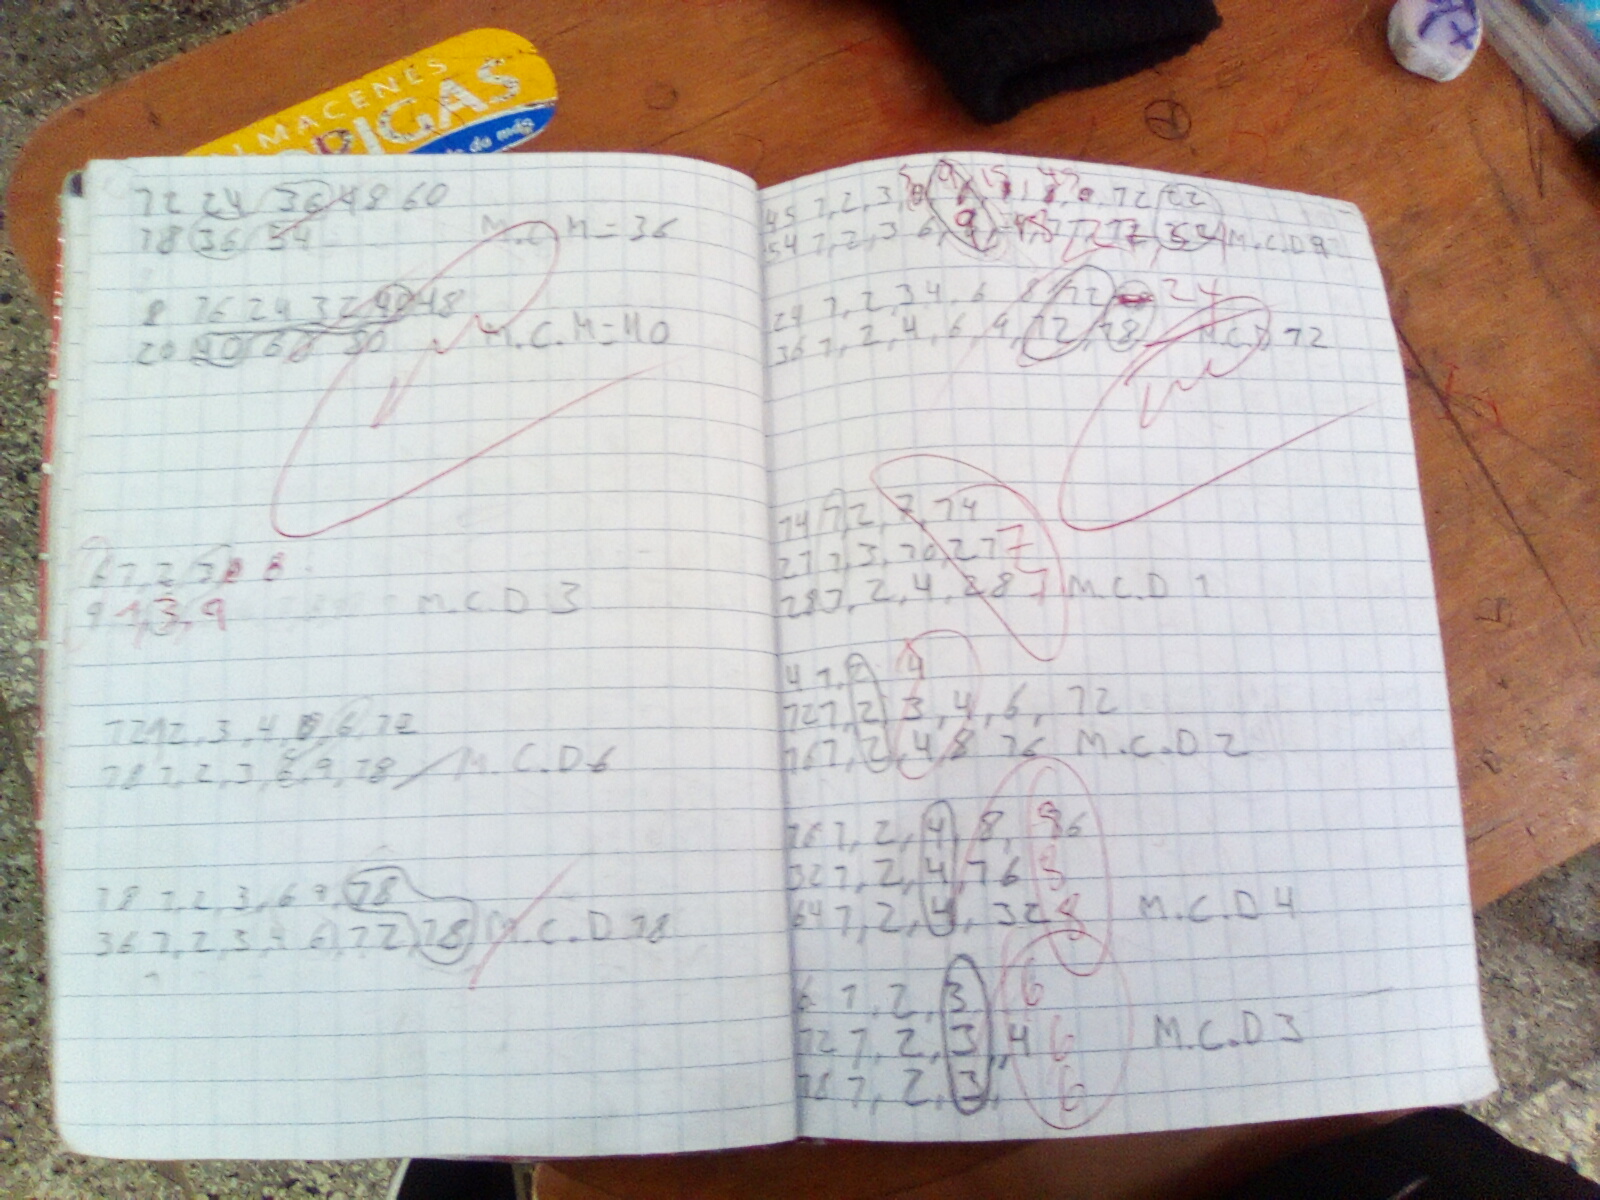 ALMACENES
12 24 36 48 60
18 36 54
M.C.M=36
8 16 24 32 40 48
20 40 60 80
M.C.M=40
6 1, 2, 3
9 1, 3, 9
M.C.D 3
12 1 2, 3, 4, 6, 12
18 1, 2, 3, 6, 9, 18
M.C.D 6
18 1, 2, 3, 6 9, 18
36 1, 2, 3, 4 6, 12, 18
M.C.D 18
45 1, 2, 3,
54 1, 2, 3 6, 9
M.C.D 9
24 1, 2, 3 4, 6 8 12 24
36 1, 2, 4, 6, 9, 12, 18
M.C.D 12
14 1, 2, 7, 14
21 1, 3, 10, 21 7
28 1, 2, 4, 28 7
M.C.D 1
4 1, 2 4
12 1, 2, 3, 4, 6, 12
16 1, 2, 4 8 16
M.C.D 2
16 1, 2, 4, 8, 16
32 1, 2, 4, 16 8
64 1, 2, 4, 32 8
M.C.D 4
6 1, 2, 3 6
12 1, 2, 3, 4 6
18 1, 2, 3, 6
M.C.D 3